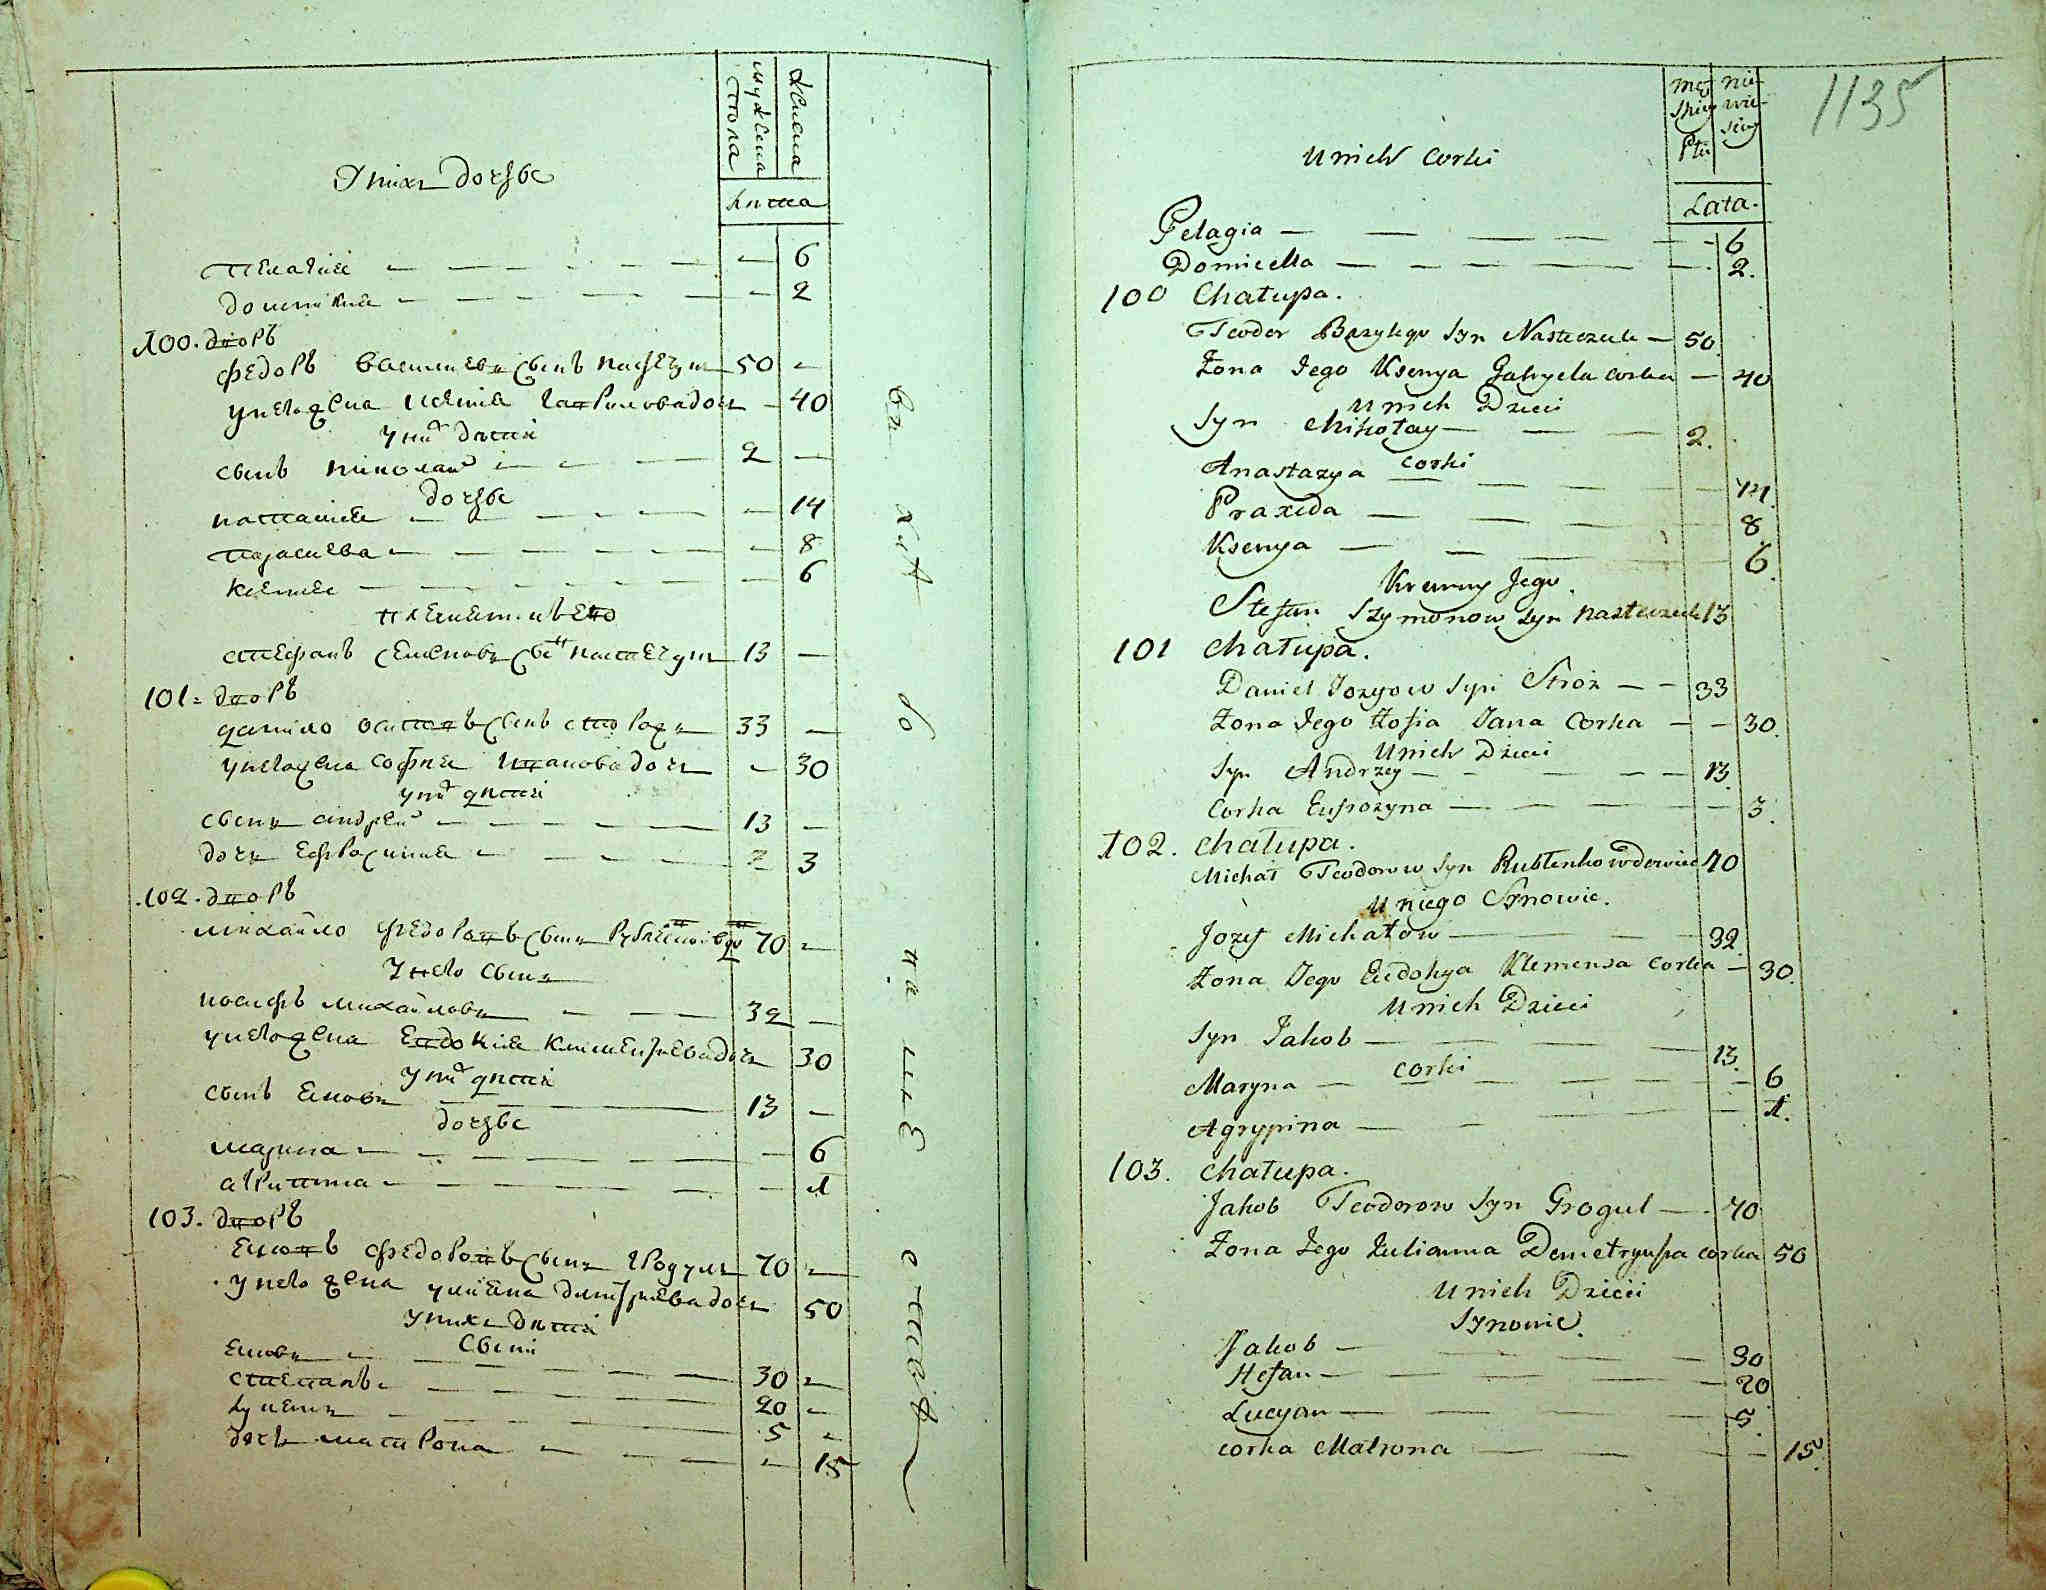 У нихъ дочери
мужеска пола
женска
лита
пелагия — 6
доминикия — 2
100. дворъ
Федоръ васильевъ сынъ 50
у него жена ксения гавриловадочь 40
у них дити
сынъ николай 2
дочери
настасия — 14
парасиева — 8
ксения — 6
племенникъ его
стефанъ семеновъ сын 13
101. дворъ
данило осиповъ сынъ сторожъ 33
у него жена софия ивановадочь 30
у них дити
сынъ андрей — 13
дочь ефросиния — 3
102. дворъ
михайло федоровъ сынъ 70
у него сынъ
иосифъ михайловъ 32
у него жена евдокия климентиевадочь 30
у них дити
сынъ ековъ 13
дочери
марина — 6
агрипина — 1
103. дворъ
Ековъ федоровъ сынъ 70
у него жена улияна димитриевадочь 50
у нихъ дити
сыни
ековъ 30
степанъ 20
лукянъ 5
дочь матрона 15
1135
U nich Corki
Męskiey Płci
Niewieściey
Lata.
Pelagia — 6
Domicella — 2.
100 Chałupa.
Teodor Bazylego Syn Nasteczuk — 50
Zona Jego Ksenya Gabryela corka — 40
U nich Dzieci
Syn Mikołay — 2.
Corki
Anastazya 14.
Praxeda — 8.
Ksenya — 6.
Krewny Jego.
Stefan Szymonow Syn Nasteczuk 13
101 Chałupa.
Daniel Jozefow Syn Stroż — 33
Zona Jego Zofia Jana Corka — 30.
U nich Dzieci
Syn Andrzey — 13.
Corka Eufrozyna — 3.
102. Chałupa.
Michał Teodorow Syn Rublenko wdowiec 70
U niego Synowie.
Jozef Michałow — 32
Zona Jego Eudokya Klemensa Corka — 30.
U nich Dzieci
Syn Jakob — 13.
Corki
Maryna — 6
Agrypina — 1.
103. Chałupa.
Jakob Teodorow Syn Grogul — 70
Zona Jego Julianna Demetryusza corka 50
U nich Dzieci
Synowie.
Jakob — 30
Stefan — 20
Lucyan — 5.
corka Matrona — 15.